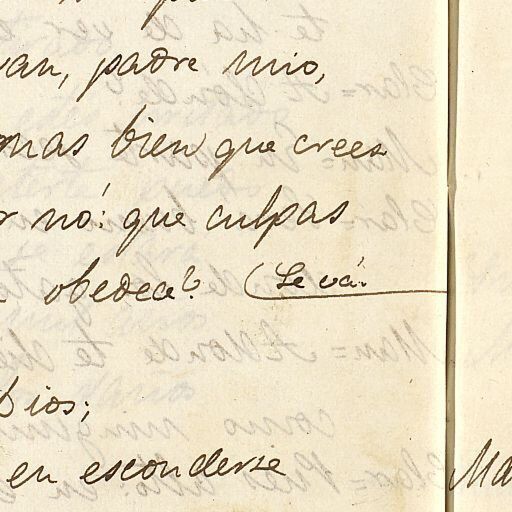 van, padre mio,
mas bien que crees
r nó: que culpas
obedece? (Se vá.
Dios;
en esconderse
Ma